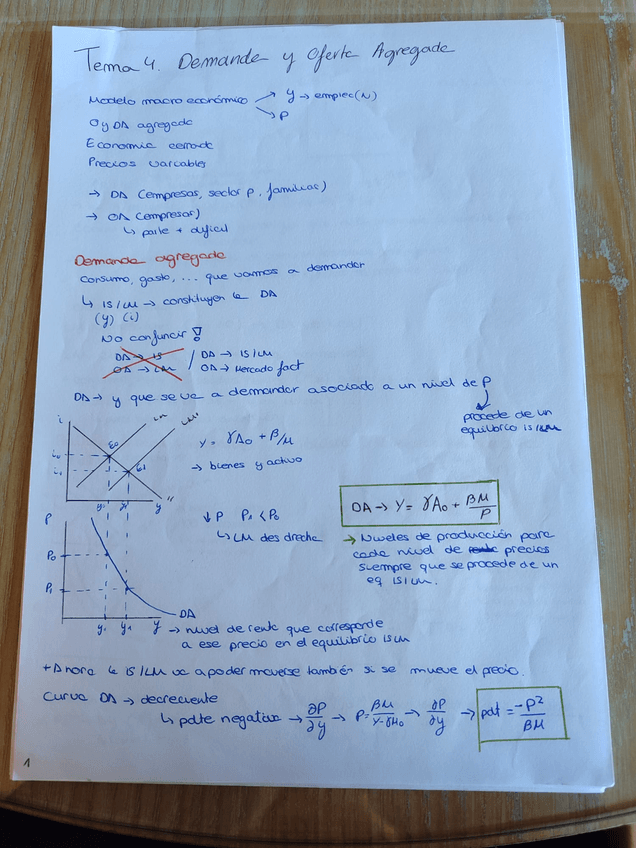 Tema 4. Demanda y Oferta Agregada
Modelo macroeconómico → y → empleo (N)
→ P
O y DA agregada
Economia cerrada
Precios variables
→ DA (empresas, sector p, familias)
→ OA (empresas)
↳ parte + dificil
Demanda agregada
Consumo, gasto, ... que vamos a demandar
↳ IS/LM → constituyen la DA
(y) (i)
No confundir!
DA → IS / DA → IS/LM
OA → LM / OA → Mercado fact
DA → y que se va a demandar asociado a un nivel de P
procede de un
equilibrio IS/LM
i LM LM'
i0 E0
i1 E1
y0 y1 y
Y = γA0 + β/M
→ bienes y activo
↓ P P1 < P0
↳ LM des drecha
DA → Y = γA0 + βM/P
→ Niveles de producción para
cada nivel de renta precios
siempre que se procede de un
eq IS/LM.
P
P0
P1
DA
y0 y1 y
→ nivel de renta que corresponde
a ese precio en el equilibrio IS LM
+ Ahora la IS/LM va a poder moverse también si se mueve el precio.
Curva DA → decreciente
↳ pdte negativa → ∂P/∂y → P = βM/Y-γA0 → ∂P/∂y → pdt = -P²/βM
1